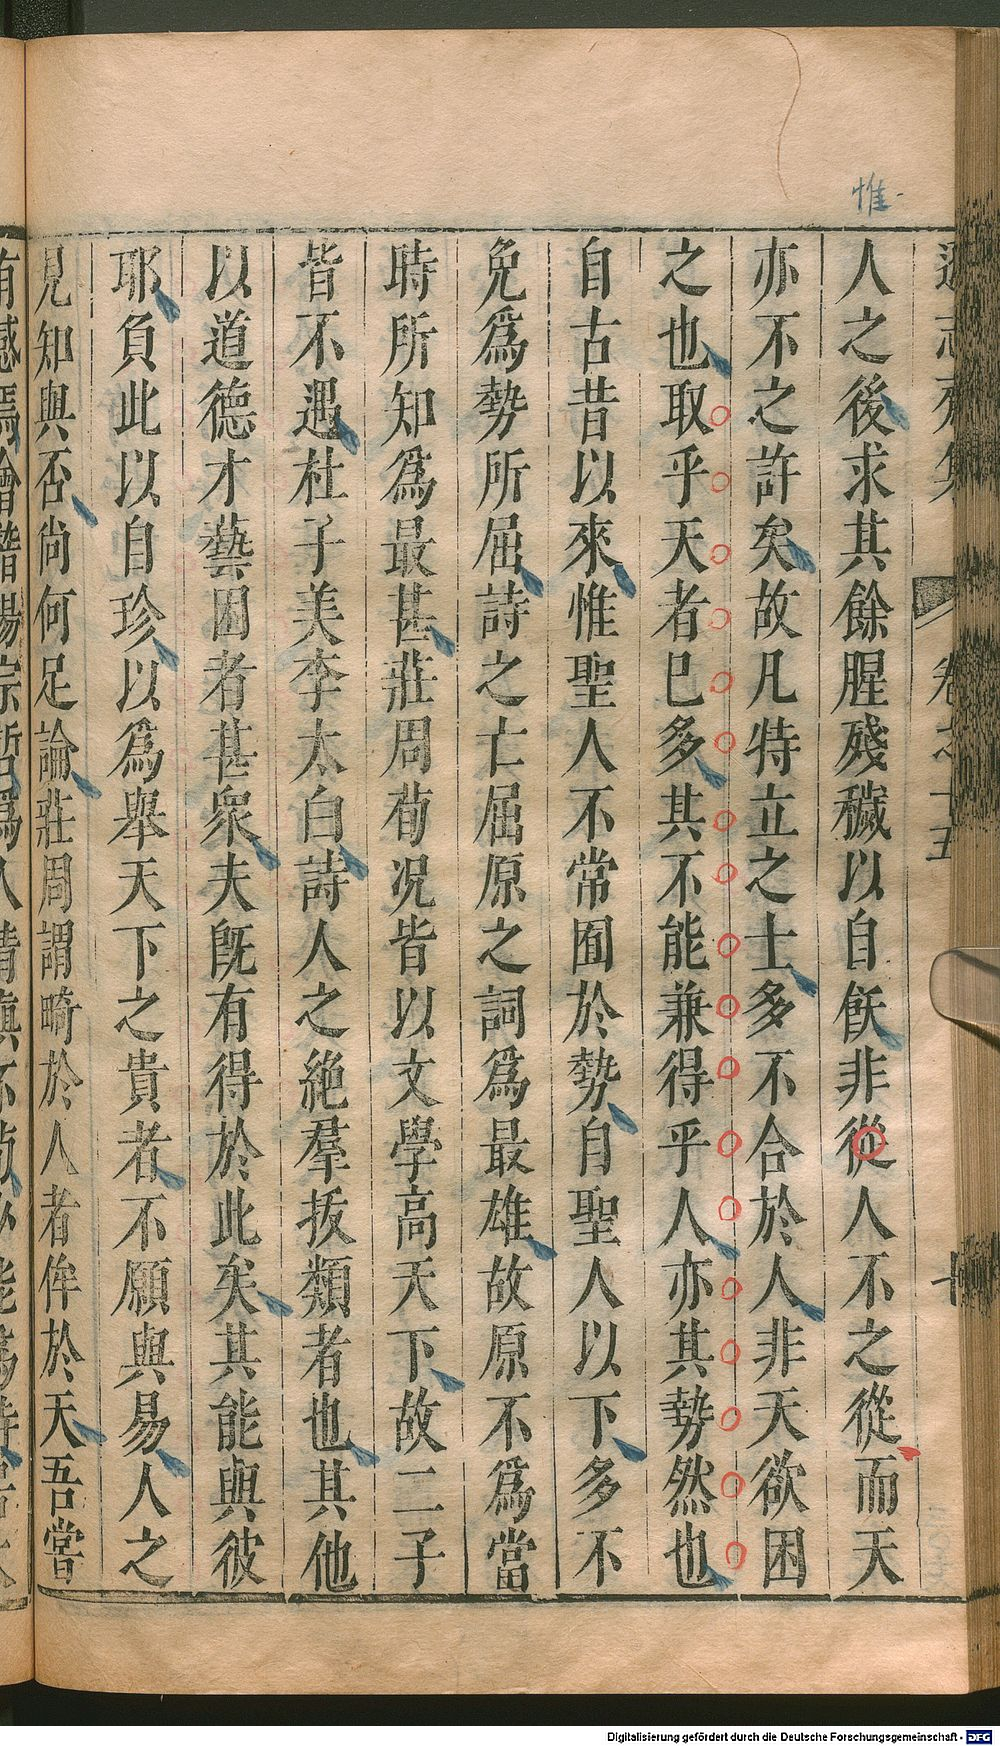 惟
人之後求其餘腥殘穢以自飫非從人不之從而天
亦不之許矣故凡特立之士多不合於人非天欲困
之也取乎天者已多其不能兼得乎人亦其勢然也
自古昔以來惟聖人不常囿於勢自聖人以下多不
免爲勢所屈詩之亡屈原之詞爲最雄故原不爲當
時所知爲最甚莊周荀況皆以文學高天下故二子
皆不遇杜子美李太白詩人之絶羣拔類者也其他
以道德才藝困者甚衆夫既有得於此矣其能與彼
耶負此以自珍以爲舉天下之貴者不願與易人之
見知與否尚何足論莊周謂畸於人者侔於天吾嘗
Digitalisierung gefördert durch die Deutsche Forschungsgemeinschaft - DFG